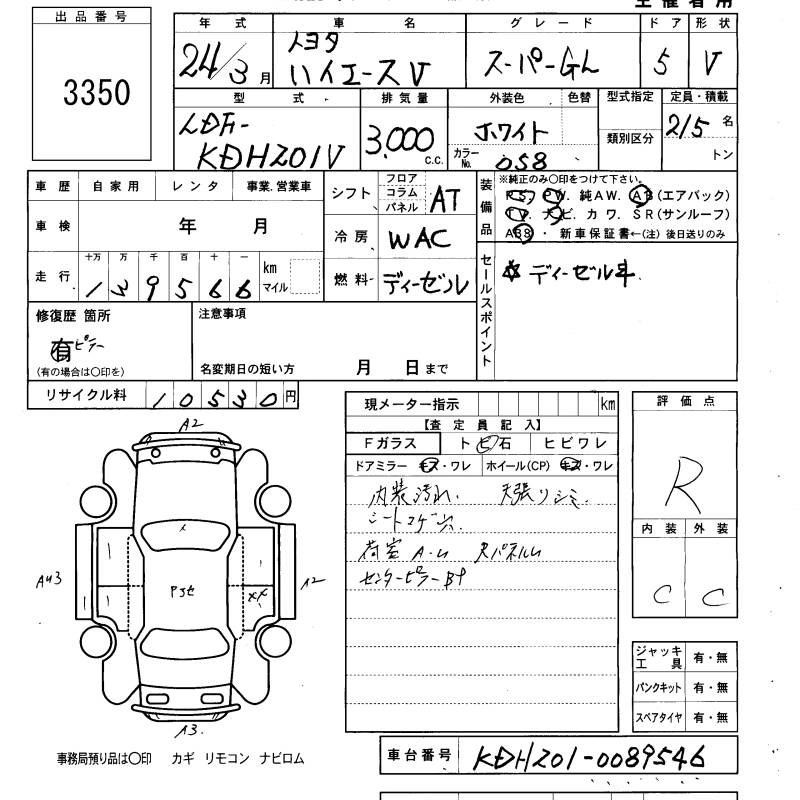 主催者用
出品番号
3350
年式 車名 グレード ドア 形状
24/3月 トヨタ ハイエースV スーパーGL 5 V
型式 排気量 外装色 色替 型式指定 定員・積載
LDF-KDH201V 3,000 c.c. ホワイト カラーNo. 058 類別区分 2/5 名 トン
車歴 自家用 レンタ 事業.営業車
車検 年 月
走行 十万 万 千 百 十 一
139566 km マイル
シフト フロア コラム パネル AT
冷房 WAC
燃料 ディーゼル
装備品 ※純正のみ〇印をつけて下さい。
P.S. P.W. 純AW. AB(エアバック)
TV. ナビ. カワ. SR(サンルーフ)
ABS ・ 新車保証書←(注) 後日送りのみ
セールスポイント ☆ ディーゼル車.
修復歴 箇所
有 ピラー
(有の場合は〇印を)
注意事項
名変期日の短い方 月 日まで
リサイクル料 10530円
現メーター指示 km
【査定員記入】
Fガラス トビ石 ヒビワレ
ドアミラー キズ・ワレ ホイール(CP) キズ・ワレ
内装汚れ. 天張りシミ.
シートコゲ穴.
荷室 A-U RパネルU
センターピラーBP
評価点
R
内装 外装
C C
A2
AU3
A2
A3
ジャッキ工具 有・無
パンクキット 有・無
スペアタイヤ 有・無
事務局預り品は〇印 カギ リモコン ナビロム
車台番号 KDH201-0089546